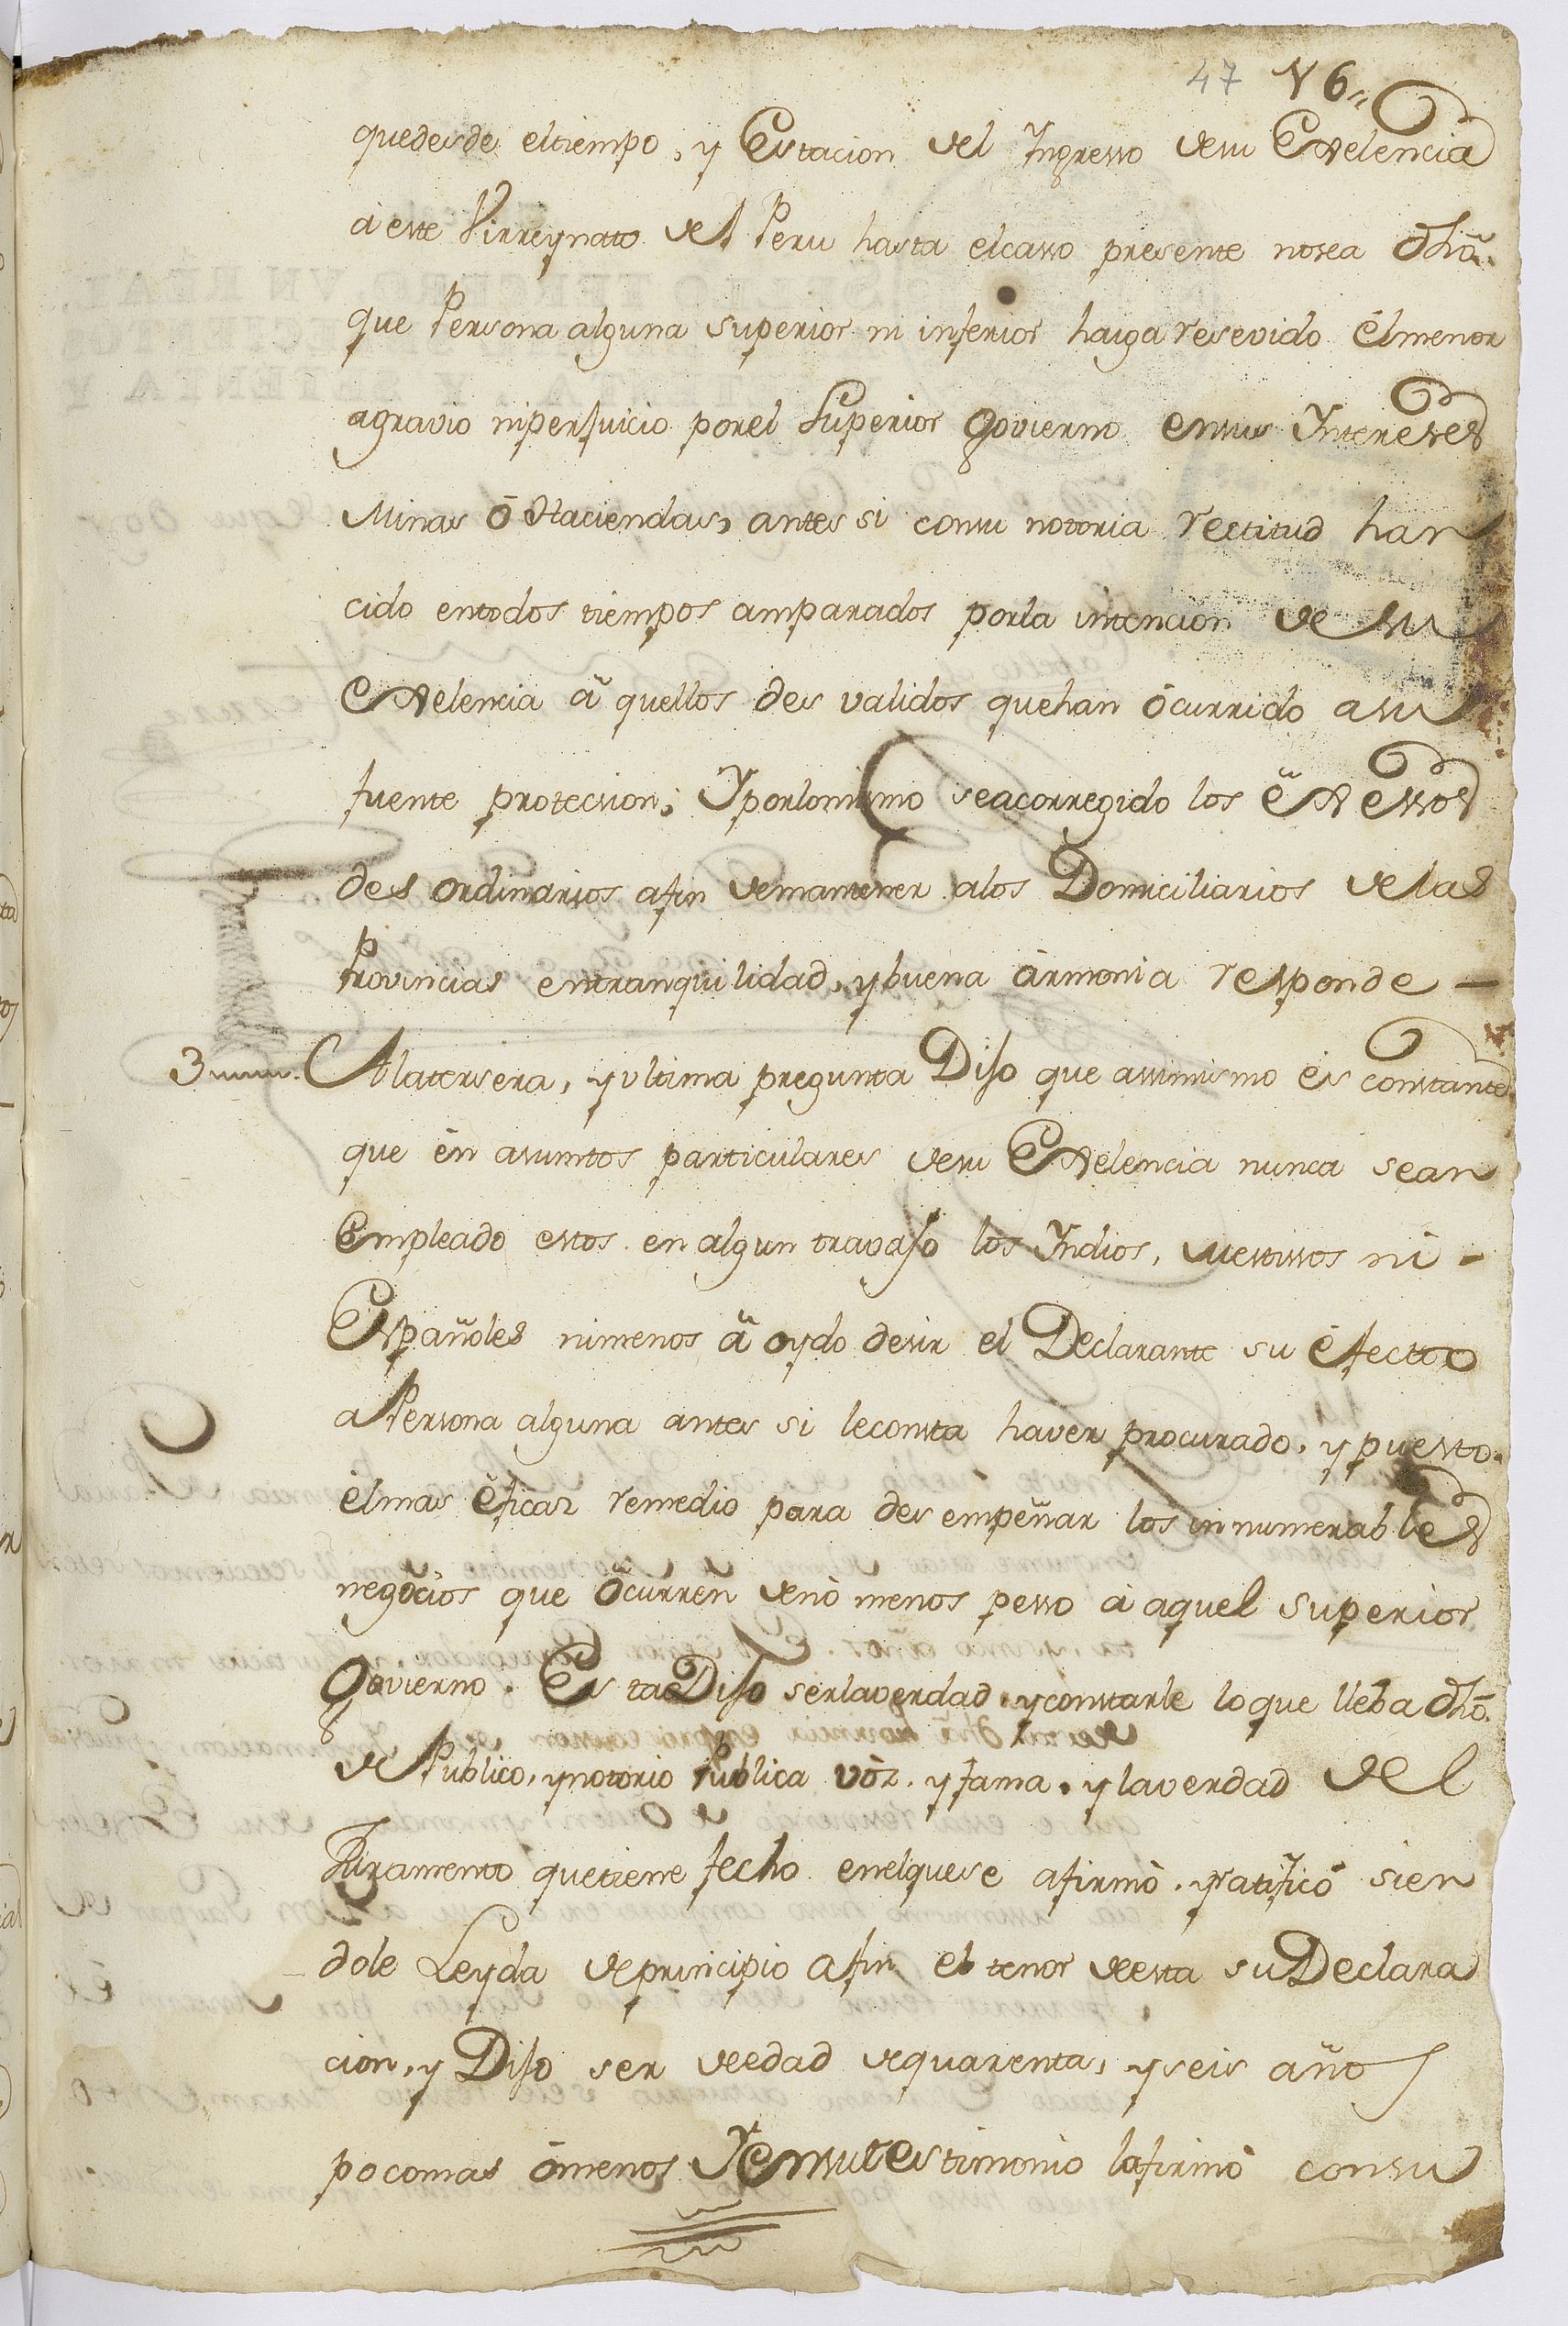 47 V6,,
quedesde eltiempo, y Estacion del Ingresso desu Exelencia
à este Virreynato del Peru hasta elcasso presente nosea dhõ.
que Persona alguna superior ni inferior haiga resevido élmenor
agravio niperjuicio porel Superior Govierno ensus Intereses
Minas ó Haciendas, antes si consu notoria rectitud han
cido entodos tiempos amparados porla intencion de su
Exelencia â quellos des validos quehan ócurrido asu
fuente protecsion; Yporlomismo seacorregido los exessos
des ordinarios afin demantener alos Domiciliarios delas
Provincias entranquilidad, ybuena ármonia responde —
3 Alatersera, yultima pregunta Dijo que assimismo és constante
que én asumtos particulares desu Exelencia nunca sean
émpleado estos en algun travajo los Yndios, mestissos ni -
Españoles nimenos â oydo desir el Declarante su éfectto
aPersona alguna antes si leconsta haver procurado, y puesto.
élmas éficaz remedio para des empeñar los innumerables
negócios que ócurren denó menos pesso á aquel superior
Govierno. Esta Dijo serlaverdad, yconstarle loque lleba dhõ.
de Publico, ynotorio Publica vóz, yfama, ylaverdad del
Juramento quetiene fecho enelquese afirmò, yratificó sien
dole Leyda deprincipio afin el tenor deesta suDeclara
cion, y Dijo ser deedad dequarenta, yseis años
pocomas ómenos Yensutestimonio lafirmò consu